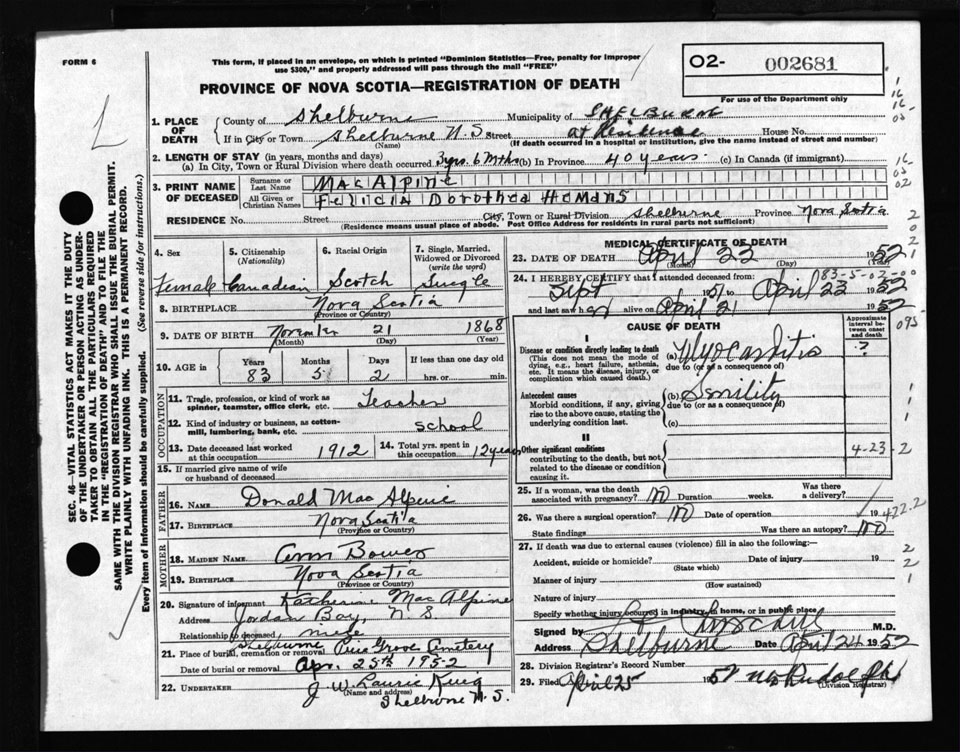 FORM 6
This form, if placed in an envelope, on which is printed "Dominion Statistics—Free, penalty for improper
use $300," and properly addressed will pass through the mail "FREE"
O2- 002681
For use of the Department only
PROVINCE OF NOVA SCOTIA—REGISTRATION OF DEATH
1. PLACE OF DEATH
County of Shelburne Municipality of SHELBURNE
If in City or Town Shelburne N.S Street at Residence House No.
(Name) (If death occurred in a hospital or institution, give the name instead of street and number)
2. LENGTH OF STAY (in years, months and days)
(a) In City, Town or Rural Division where death occurred 3yrs. 6 Mths (b) In Province 40 years. (c) In Canada (if immigrant)
3. PRINT NAME OF DECEASED
Surname or Last Name MacAlpine
All Given or Christian Names Felicia Dorothea Hemans
RESIDENCE No. Street City, Town or Rural Division Shelburne Province Nova Scotia
(Residence means usual place of abode. Post Office Address for residents in rural parts not sufficient)
4. Sex
5. Citizenship (Nationality)
6. Racial Origin
7. Single, Married, Widowed or Divorced (write the word)
Female Canadian Scotch Single
8. BIRTHPLACE Nova Scotia
(Province or Country)
9. DATE OF BIRTH November 21 1868
(Month) (Day) (Year)
10. AGE in Years Months Days If less than one day old
83 5 2 hrs. or min.
OCCUPATION
11. Trade, profession, or kind of work as spinner, teamster, office clerk, etc. Teacher
12. Kind of industry or business, as cotton-mill, lumbering, bank, etc. School
13. Date deceased last worked at this occupation 1912
14. Total yrs. spent in this occupation 12 years
15. If married give name of wife or husband of deceased
FATHER
16. NAME Donald MacAlpine
17. BIRTHPLACE Nova Scotia
(Province or Country)
MOTHER
18. MAIDEN NAME Ann Bower
19. BIRTHPLACE Nova Scotia
(Province or Country)
20. Signature of informant Katherine MacAlpine
Address Jordan Bay, N S
Relationship to deceased, niece
21. Place of burial, cremation or removal Shelburne Pine Grove Cemetery
Date of burial or removal Apr. 25th 1952
22. UNDERTAKER J. W. Laurie King
(Name and address)
Shelburne N.S.
MEDICAL CERTIFICATE OF DEATH
23. DATE OF DEATH April 23 1952
(Month) (Day) (Year)
83-5-02-00
24. I HEREBY CERTIFY that I attended deceased from
Sept 1951 to April 23 1952
and last saw her alive on April 21 1952
CAUSE OF DEATH
Approximate interval between onset and death
I
Disease or condition directly leading to death
(This does not mean the mode of dying, e.g., heart failure, asthenia, etc. It means the disease, injury, or complication which caused death.)
(a) Myocarditis ?
due to (or as a consequence of)
Antecedent causes
Morbid conditions, if any, giving rise to the above cause, stating the underlying condition last.
(b) Senility
due to (or as a consequence of)
(c)
II
Other significant conditions
contributing to the death, but not related to the disease or condition causing it.
4-23-2
25. If a woman, was the death associated with pregnancy? No Duration weeks. Was there a delivery?
26. Was there a surgical operation? No Date of operation 19 422.2
State findings Was there an autopsy? No
27. If death was due to external causes (violence) fill in also the following:—
Accident, suicide or homicide? Date of injury 19
(State which)
Manner of injury
(How sustained)
Nature of injury
Specify whether injury occurred in industry, in home, or in public place
Signed by M.D.
Address Shelburne Date April 24 1952
28. Division Registrar's Record Number
29. Filed April 25 1952
(Division Registrar)
SEC. 46—VITAL STATISTICS ACT MAKES IT THE DUTY
OF THE UNDERTAKER OR PERSON ACTING AS UNDERTAKER
TO OBTAIN ALL THE PARTICULARS REQUIRED
IN THE "REGISTRATION OF DEATH" AND TO FILE THE
SAME WITH THE DIVISION REGISTRAR WHO SHALL ISSUE THE BURIAL PERMIT.
WRITE PLAINLY WITH UNFADING INK. THIS IS A PERMANENT RECORD.
Every item of information should be carefully supplied. (See reverse side for instructions.)